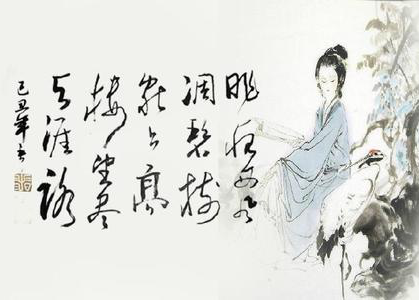 昨夜西风
凋碧树
独上高
楼望尽
天涯路
己丑年书